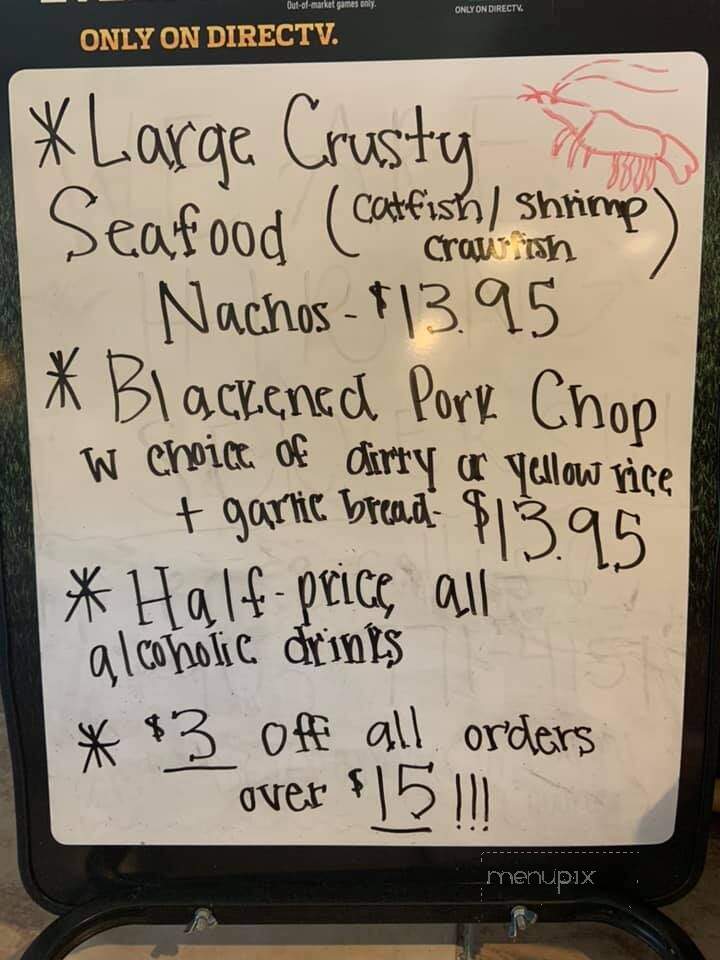 Out-of-market games only.
ONLY ON DIRECTV.
ONLY ON DIRECTV.
*Large Crusty
Seafood (catfish/shrimp
crawfish)
Nachos - $13.95
* Blackened Pork Chop
w choice of dirty or yellow rice
+ garlic bread - $13.95
* Half-price all
alcoholic drinks
* $3 off all orders
over $15!!!
menupix